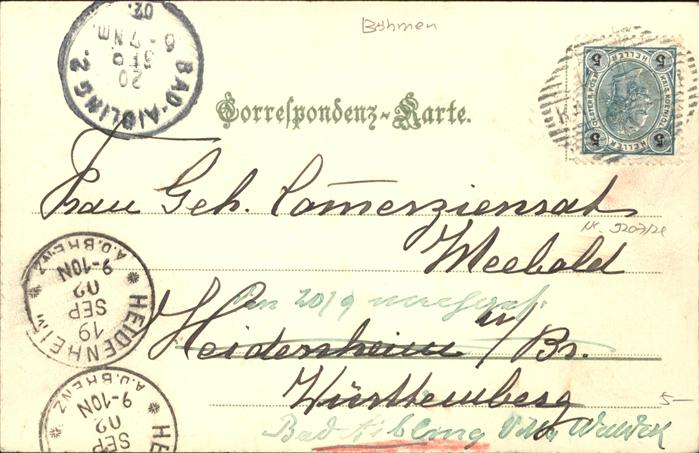 Böhmen
BAD-AIBLING 2.
20
SEP
6-7 NM.
02.
5 HELLER 5
5 HELLER 5
Correspondenz-Karte.
Frau Geh. Com̅erzienrat
Meebold
Am 20/9
Heidenheim a/Br.
Württemberg
Bad Aibling
5-
HEIDENHEIM
A.D. BRENZ
19
SEP
02
9-10N
HEIDENHEIM
A.D. BRENZ
SEP
02
9-10N